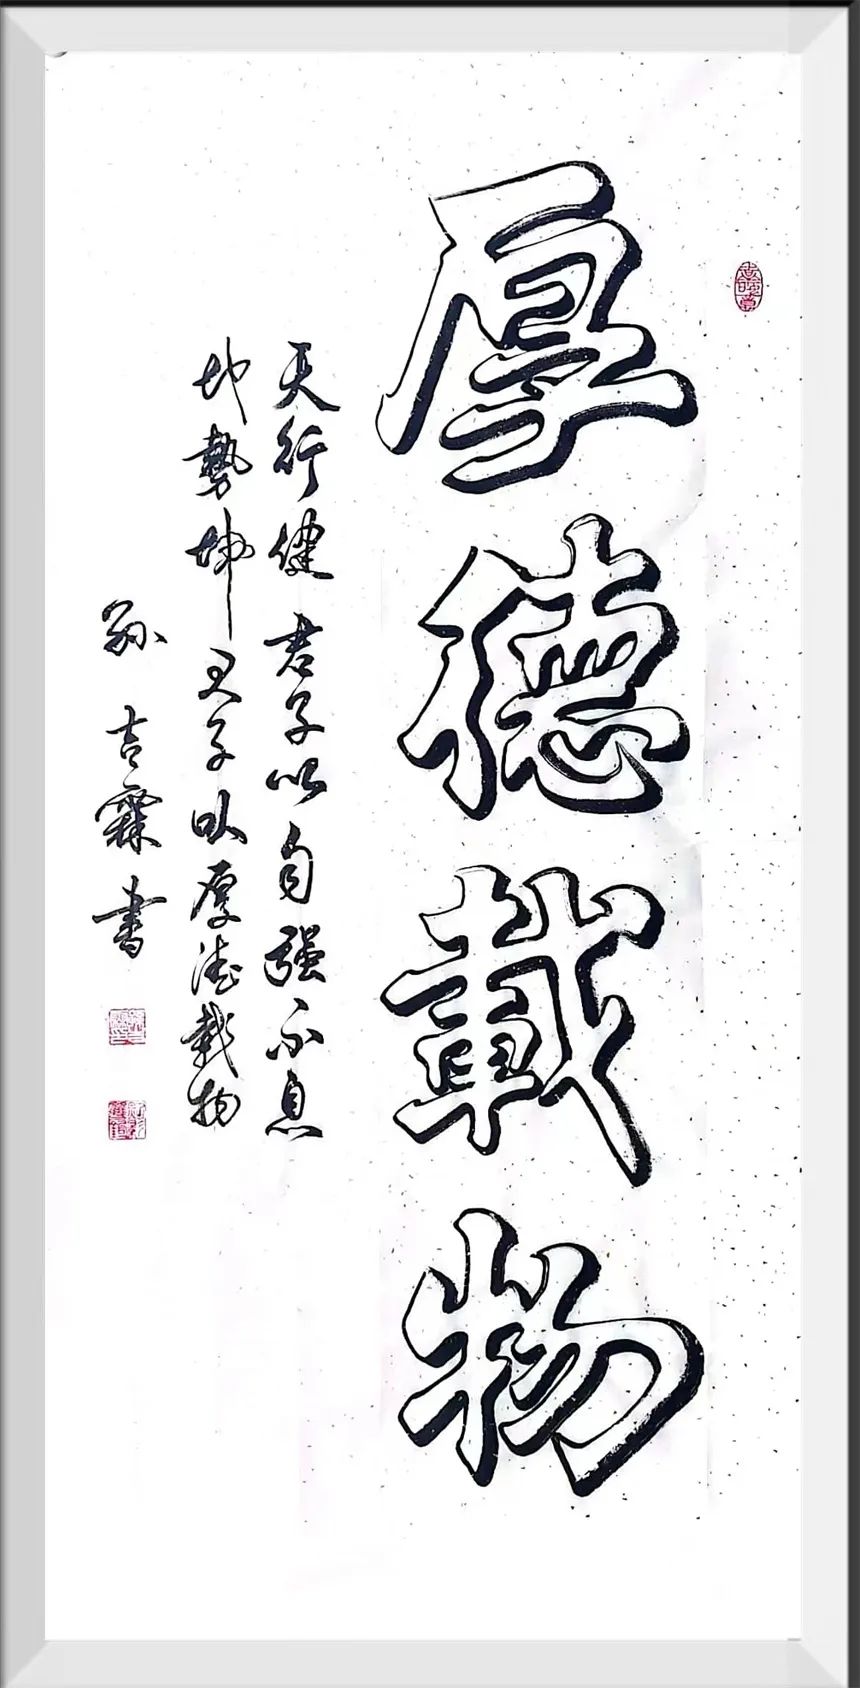 厚德載物
天行健君子以自强不息
地勢坤君子以厚德載物
孫吉霖書